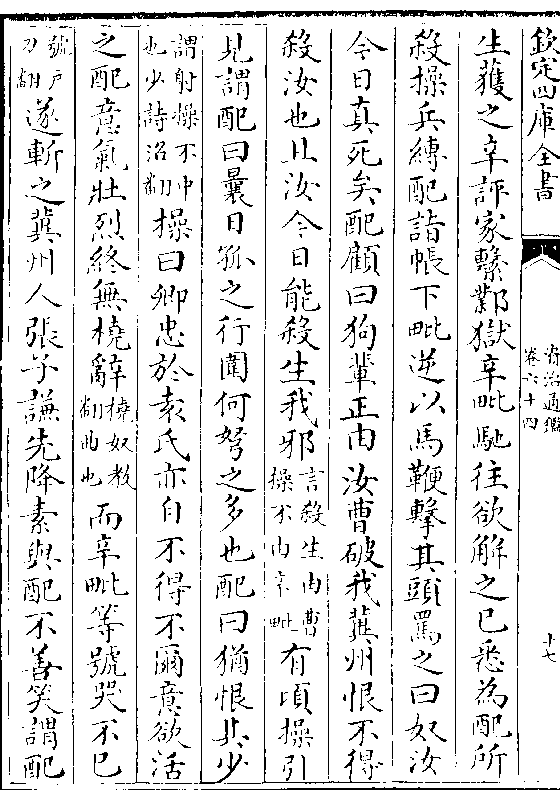 欽定四庫全書
資治通鑑
卷六十四
十七
生獲之辛評家繫鄴獄辛毗馳往欲解之已悉為配所
殺操兵縛配詣帳下毗逆以馬鞭擊其頭罵之曰奴汝
今日真死矣配顧曰狗輩正由汝曹破我冀州恨不得
殺汝也且汝今日能殺生我邪言殺生由曹操不由辛毗有頃操引
見謂配曰曩日孤之行圍何弩之多也配曰猶恨其少
謂射操不中也少詩沼翻操曰卿忠於袁氏亦自不得不爾意欲活
之配意氣壯烈終無橈辭橈奴教翻曲也而辛毗等號哭不已
號戶刀翻遂斬之冀州人張子謙先降素與配不善笑謂配